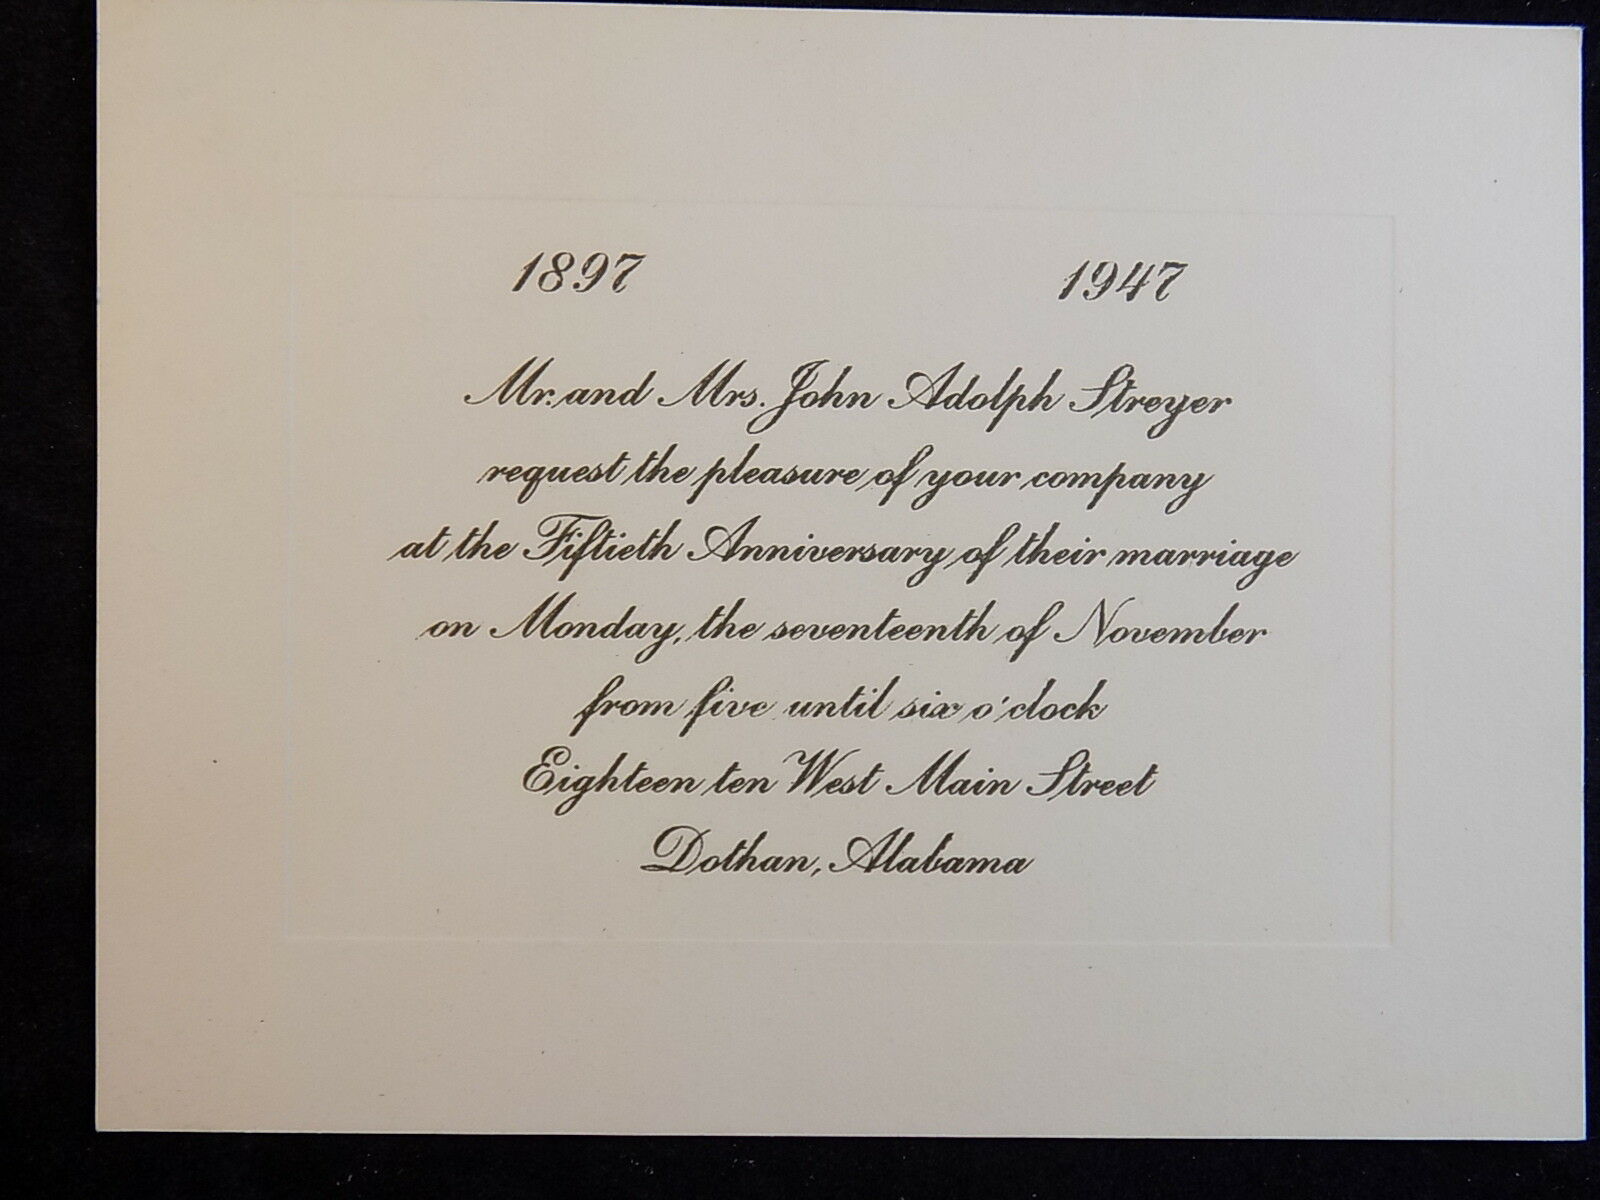 1897 1947
Mr. and Mrs. John Adolph Streyer
request the pleasure of your company
at the Fiftieth Anniversary of their marriage
on Monday, the seventeenth of November
from five until six o'clock
Eighteen ten West Main Street
Dothan, Alabama